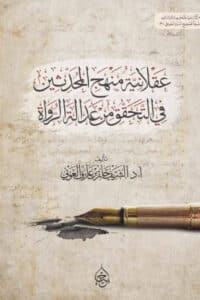 عقلانية منهج المحدثين
في التحقق من عدالة الرواة
تأليف
أ.د. الشريف حاتم بن عارف العوني